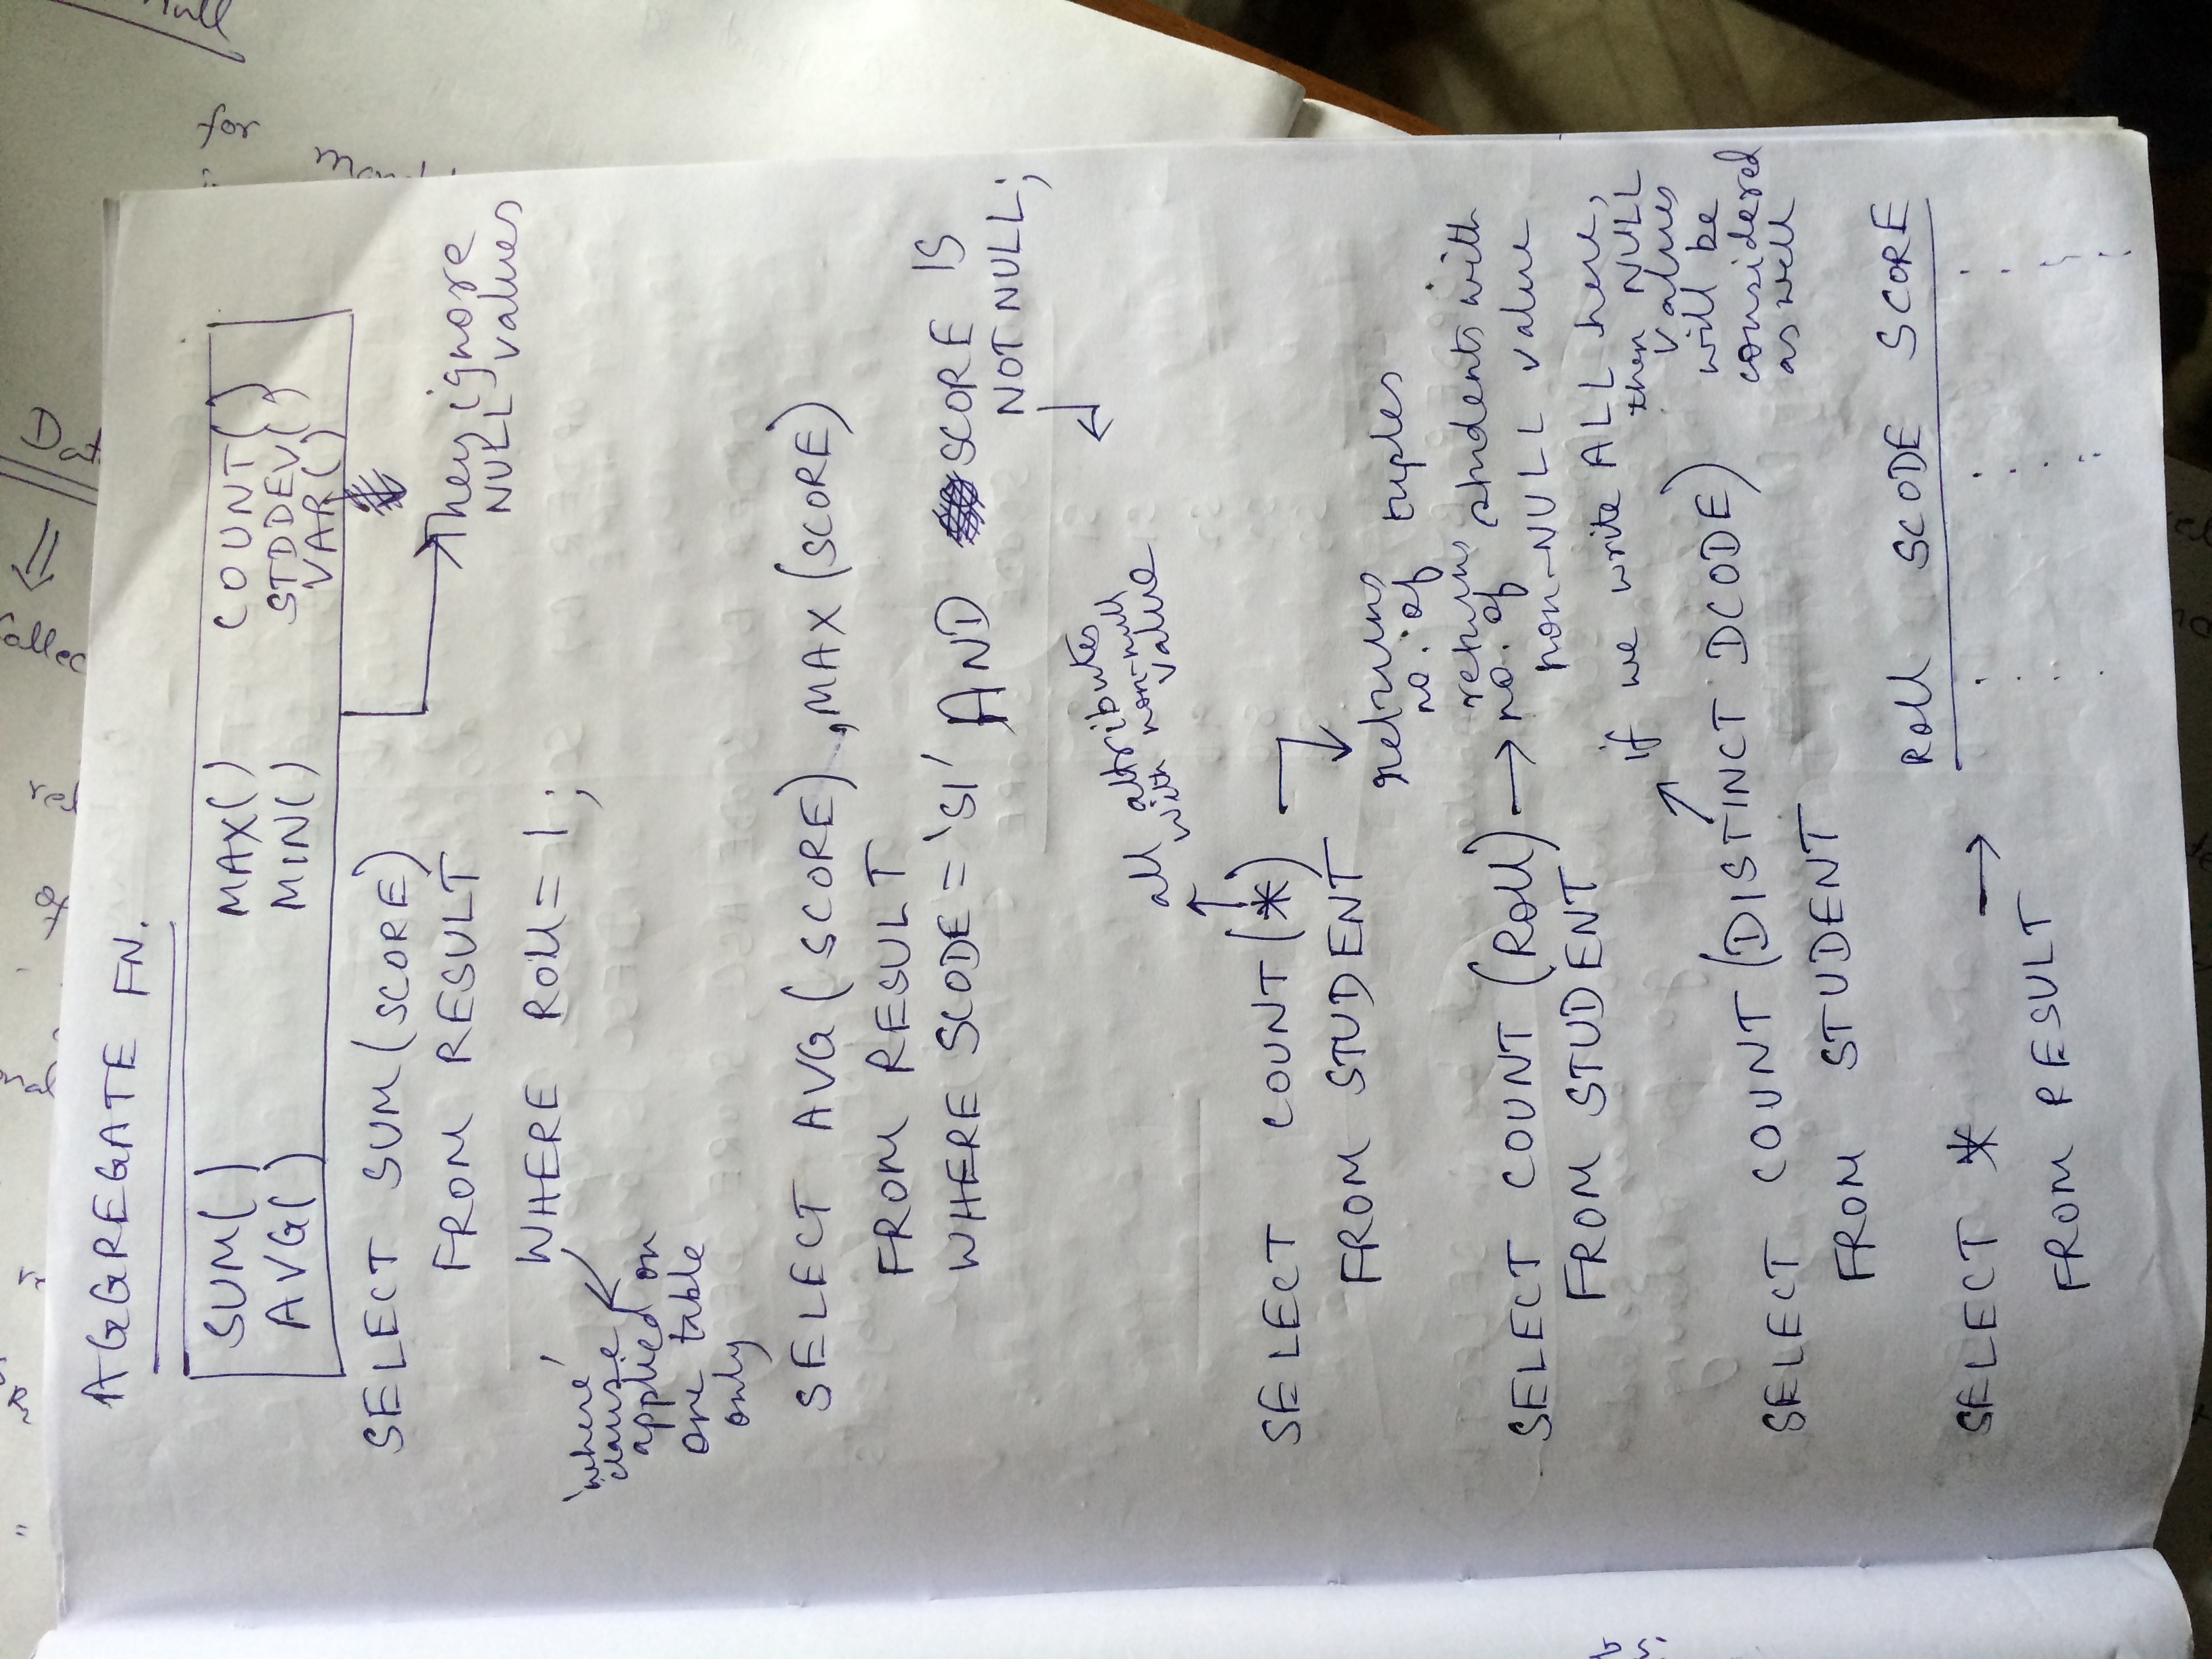 AGGREGATE FN.
SUM() MAX() COUNT()
AVG() MIN() STDDEV()
VAR()
SELECT SUM(SCORE)
FROM RESULT
They ignore
NULL values
WHERE Roll = 1;
'where'
clause
applied on
one table
only
SELECT AVG(SCORE), MAX(SCORE)
FROM RESULT
WHERE SCODE = 'S1' AND SCORE IS
NOT NULL;
all attributes
with non-null
value
SELECT COUNT(*)
FROM STUDENT
returns
no. of tuples
SELECT COUNT(Roll) → returns
no. of students with
non-NULL value
FROM STUDENT
if we write ALL here,
then NULL
values
will be
considered
as well
SELECT COUNT(DISTINCT DCODE)
FROM STUDENT
Roll SCODE SCORE
SELECT * →
FROM RESULT
Dat
Collec
for